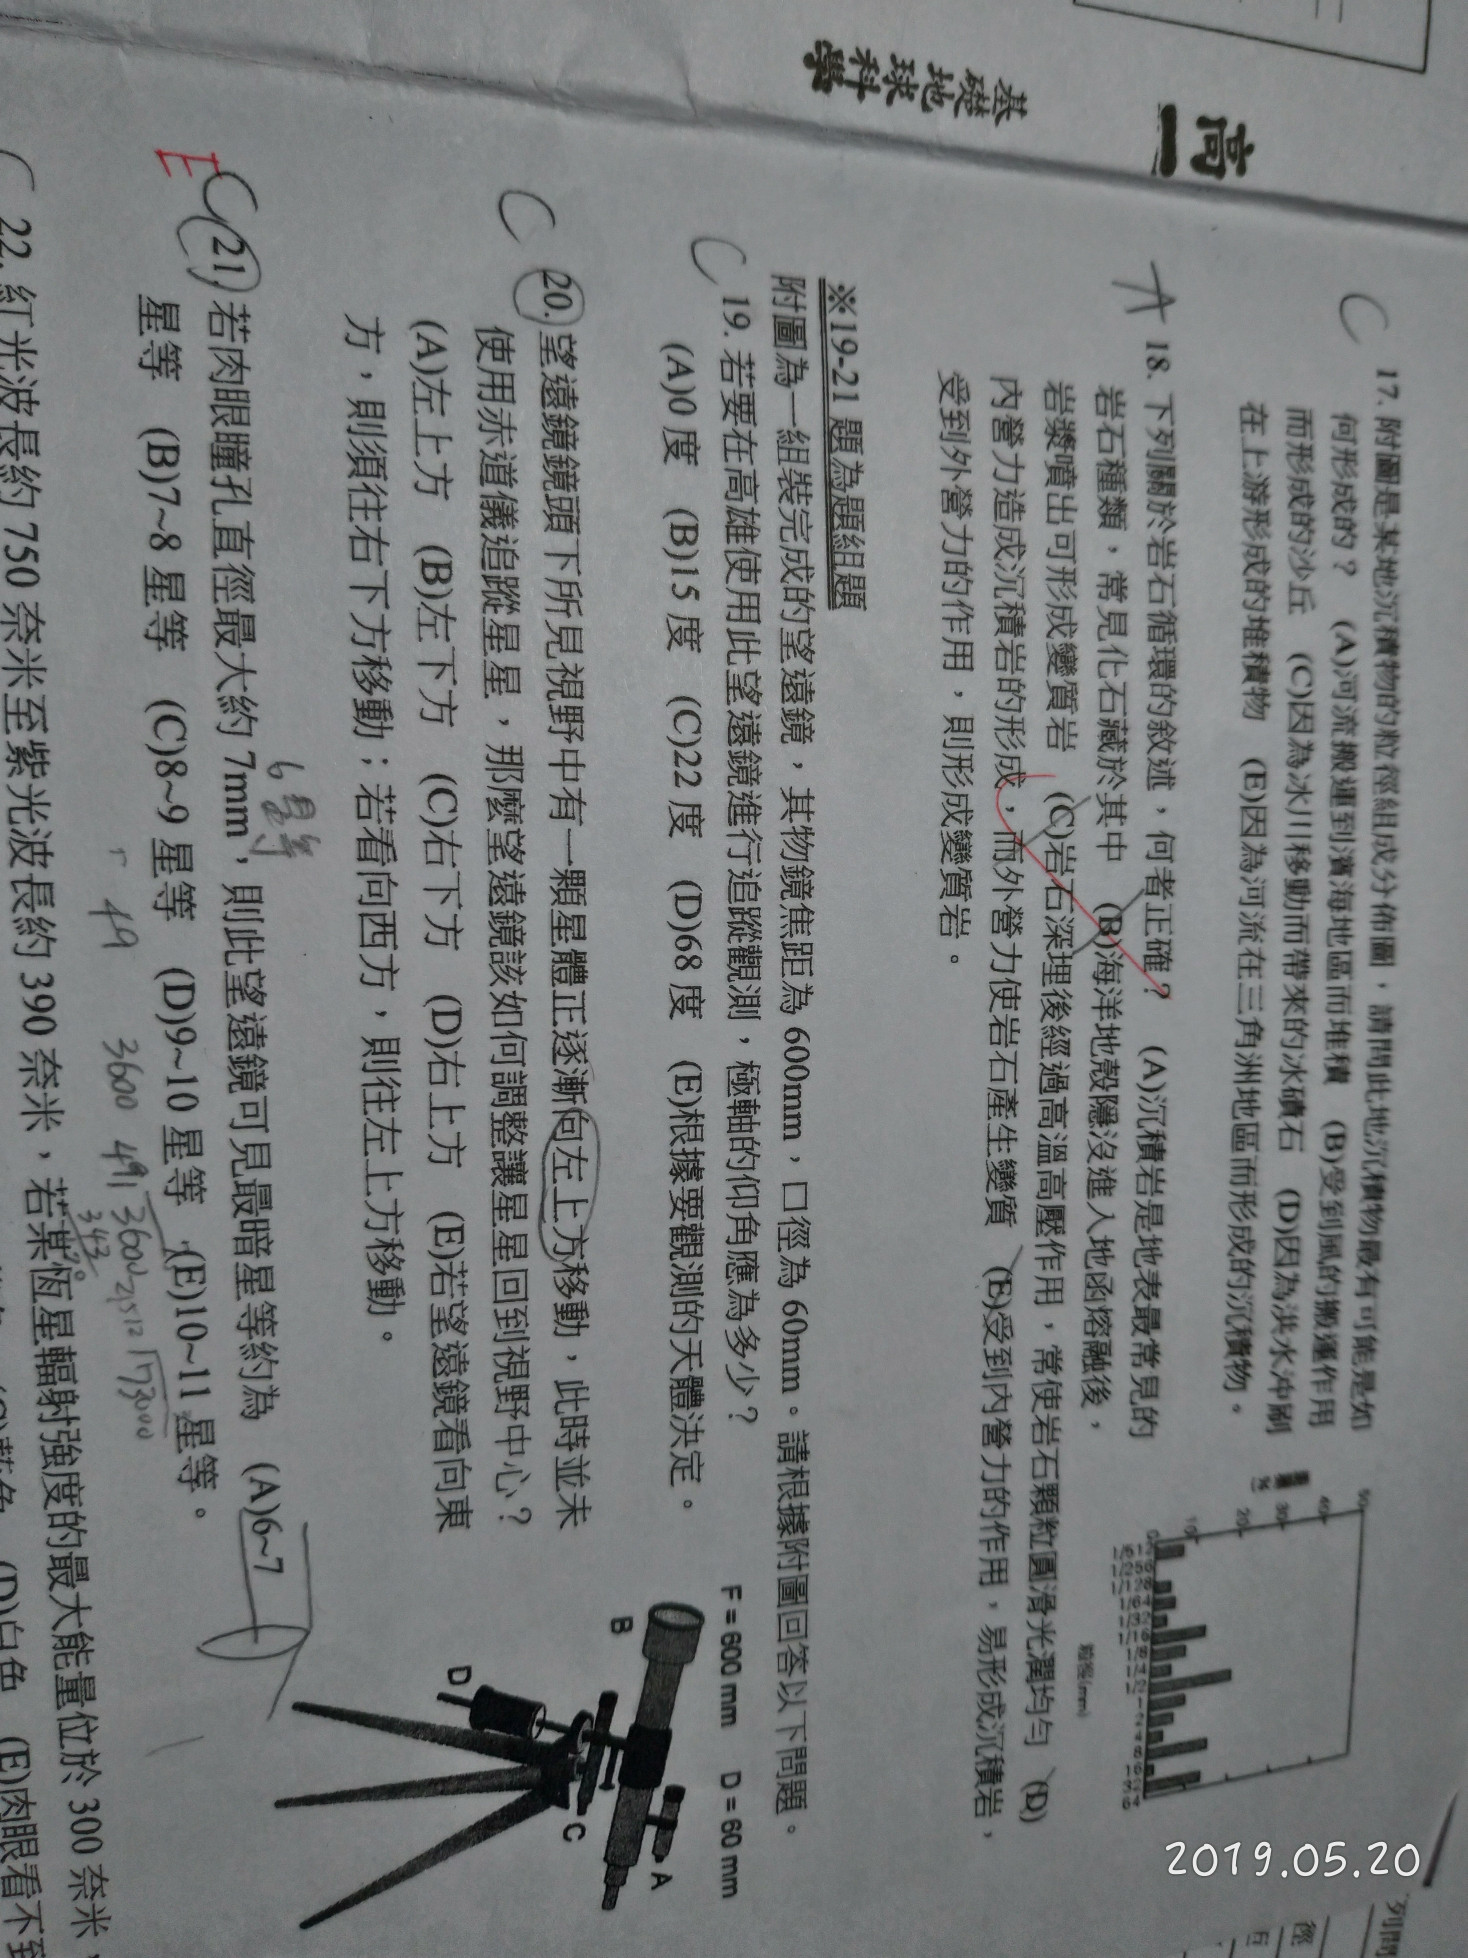 高一
基礎地球科學
C 17. 附圖是某地沉積物的粒徑組成分佈圖，請問此地沉積物最有可能是如
何形成的？ (A)河流搬運到濱海地區而堆積 (B)受到風的搬運作用
而形成的沙丘 (C)因為冰川移動而帶來的冰磧石 (D)因為洪水沖刷
在上游形成的堆積物 (E)因為河流在三角洲地區而形成的沉積物。
50
40
30
20
10
0
%
粒徑(mm)
A 18. 下列關於岩石循環的敘述，何者正確？ (A)沉積岩是地表最常見的
岩石種類，常見化石藏於其中 (B)海洋地殼隱沒進入地函熔融後，
岩漿噴出可形成變質岩 (C)岩石深埋後經過高溫高壓作用，常使岩石顆粒圓滑光潤均勻 (D)
內營力造成沉積岩的形成，而外營力使岩石產生變質 (E)受到內營力的作用，易形成沉積岩，
受到外營力的作用，則形成變質岩。
※19-21 題為題組題
附圖為一組裝完成的望遠鏡，其物鏡焦距為 600mm，口徑為 60mm。請根據附圖回答以下問題。
C 19. 若要在高雄使用此望遠鏡進行追蹤觀測，極軸的仰角應為多少？
(A)0 度 (B)15 度 (C)22 度 (D)68 度 (E)根據要觀測的天體決定。
F = 600 mm D = 60 mm
A
B
C
D
C 20. 望遠鏡鏡頭下所見視野中有一顆星體正逐漸向左上方移動，此時並未
使用赤道儀追蹤星星，那麼望遠鏡該如何調整讓星星回到視野中心？
(A)左上方 (B)左下方 (C)右下方 (D)右上方 (E)若望遠鏡看向東
方，則須往右下方移動；若看向西方，則往左上方移動。
6星等
E C 21. 若肉眼瞳孔直徑最大約 7mm，則此望遠鏡可見最暗星等約為 (A)6~7
星等 (B)7~8 星等 (C)8~9 星等 (D)9~10 星等 (E)10~11 星等。
49 3600 49 3600 2.512 73000
343
C 22. 紅光波長約 750 奈米至紫光波長約 390 奈米，若某恆星輻射強度的最大能量位於 300 奈米，
(D)白色 (E)肉眼看不到
2019.05.20